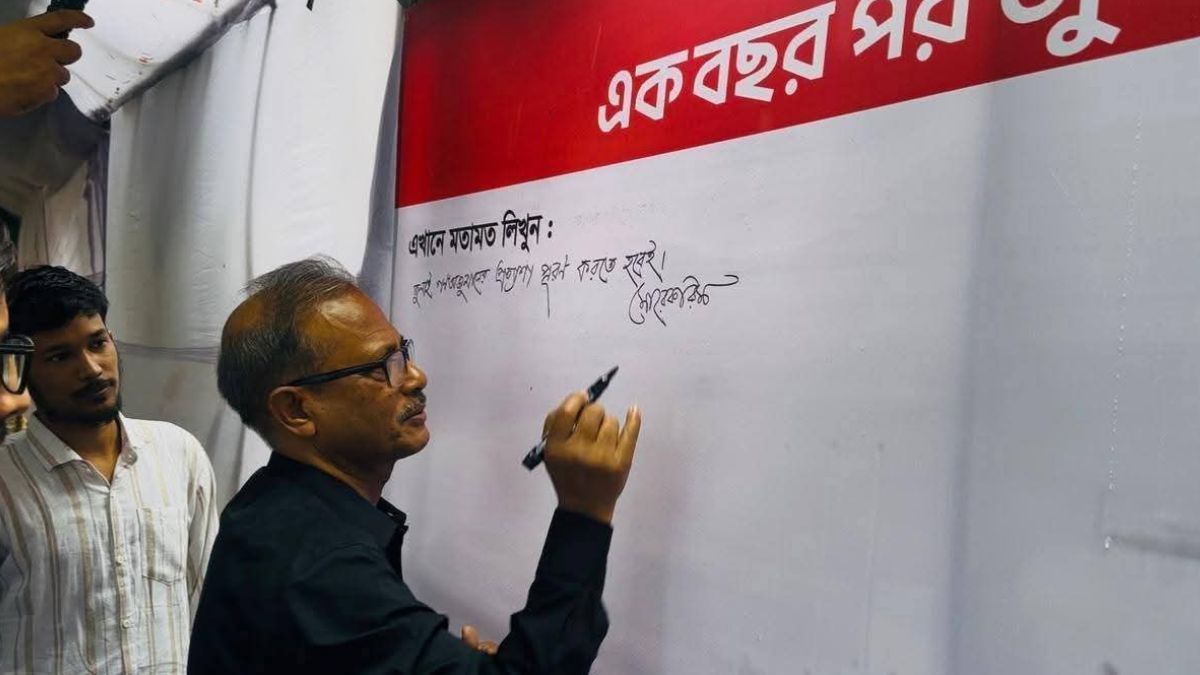 এক বছর পর জু
এখানে মতামত লিখুন :
জুলাই গণঅভ্যুত্থানের প্রত্যাশা পূরণ করতে হবেই।